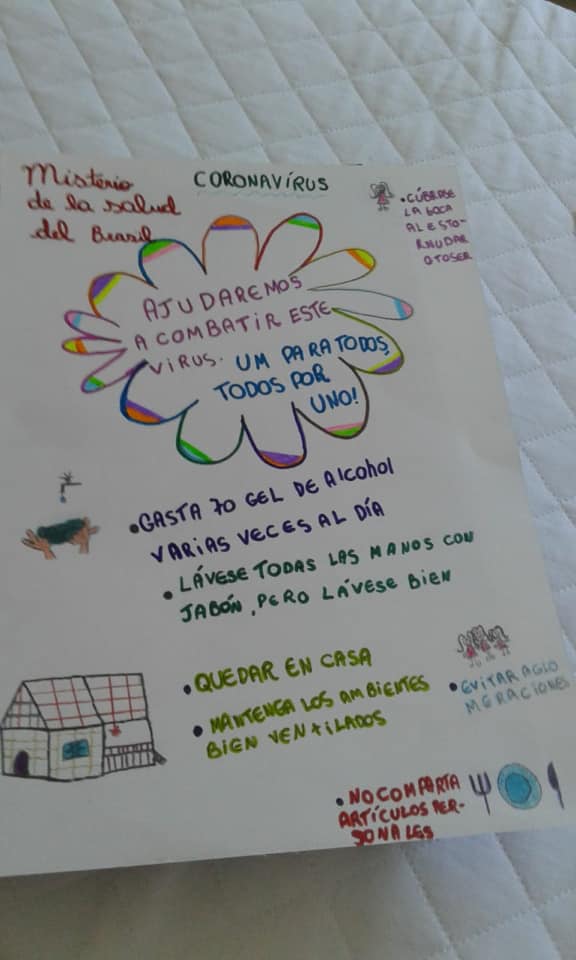 Misterio
de la salud
del Brasil
CORONAVÍRUS
• CÚBRASE
LA BOCA
AL ESTO-
RNUDAR
O TOSER
AJUDAREMOS
A COMBATIR ESTE
VIRUS. UM PARA TODOS,
TODOS POR
UNO!
• GASTA 70 GEL DE ALCOHOL
VARIAS VECES AL DÍA
• LÁVESE TODAS LAS MANOS CON
JABÓN, PERO LÁVESE BIEN
• QUEDAR EN CASA
• MANTENGA LOS AMBIENTES
BIEN VENTILADOS
• EVITAR AGLO
MERACIONES
• NO COMPARTA
ARTÍCULOS PER-
SONALES